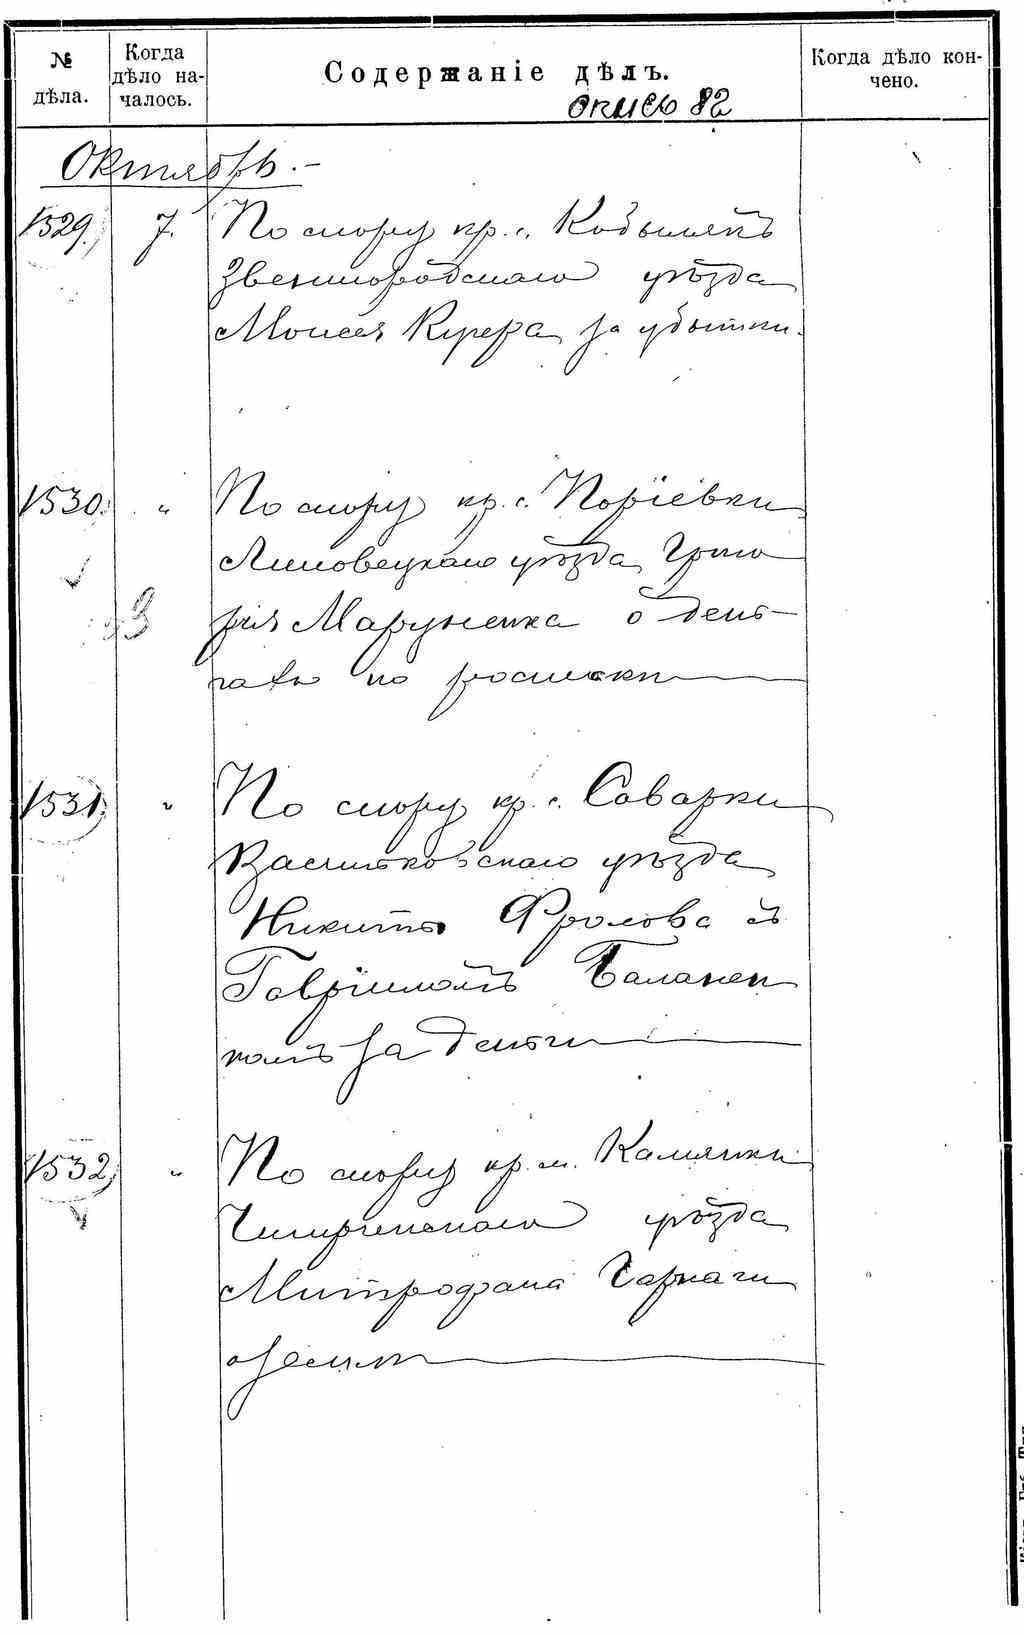 № дѣла.
Когда дѣло началось.
Содержаніе дѣлъ.
Когда дѣло кончено.
опись 82
Октябрь.-
1529. 7. По спору кр. с. Кобылякъ
Звенигородскаго уѣзда
Моисея Кучера за убытки.
1530. " По спору кр. с. Юріевки
Липовецкаго уѣзда Григо
рія Маруненка о день-
гахъ по росписки
1531. " По спору кр. с. Саварки
Васильковскаго уѣзда
Никиты Фролова съ
Гавріиломъ Баланен
комъ за деньги
1532 " По спору кр. м. Камянки
Чигиринскаго уѣзда
Митрофана
о земли